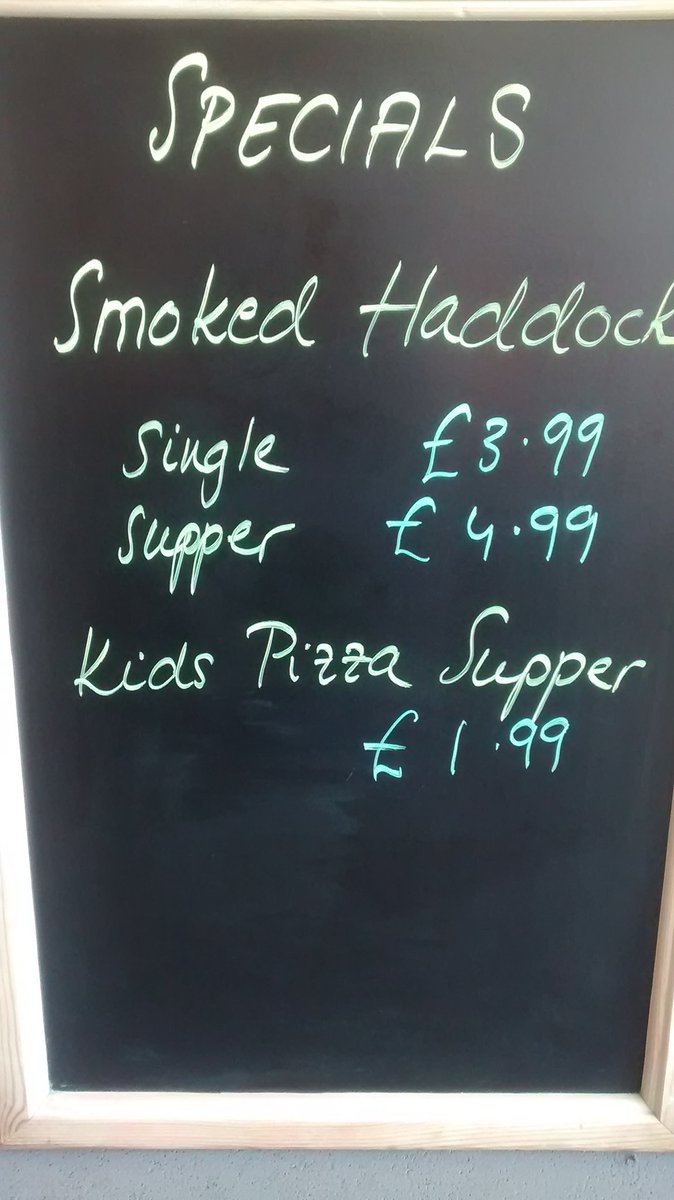 SPECIALS
Smoked Haddock
Single £3.99
Supper £4.99
Kids Pizza Supper
£1.99